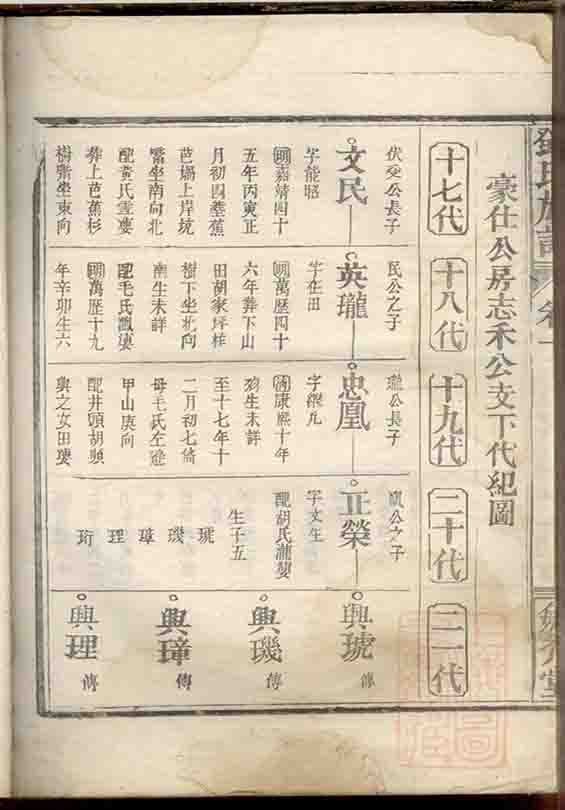 氏族譜 卷一
豪仕公房志禾公支下代紀圖
十七代
十八代
十九代
二十代
二一代
伏公長子
文民
字能昭
明嘉靖四十
五年丙寅正
月初四塟蕉
芭塘上岸坑
嘴坐南向北
配黃氏
葬上芭蕉杉
樹嘴坐東向
民公之子
英瓏
字在田
明萬歷四十
六年葬下山
田胡家坪樣
樹下坐北向
南生未詳
配毛氏
明萬歷十九
年辛卯生六
瓏公長子
忠凰
字
清康熙十年
歿生未詳
至十七年十
二月初七
母毛氏左邊
甲山庚向
配井頭胡
與之女田
凰公之子
正榮
字文生
配胡氏
生子五
琥
璣
璋
理
珩
興琥 傳
興璣 傳
興璋 傳
興理 傳